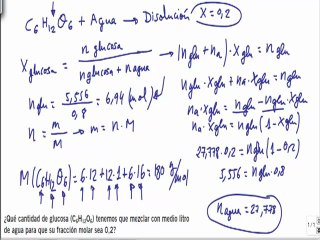 C₆H₁₂O₆ + Agua → Disolución X = 0,2
X glucosa = n glucosa / n glucosa + n agua → (n glu + n a) · X glu = n glu
n glu · X glu + n a · X glu = n glu
n glu = 5,556 / 0,8 = 6,94 (mol)
n a · X glu = n glu - n glu · X glu
n a · X glu = n glu (1 - X glu)
n = m / M → m = n · M
27,778 · 0,2 = n glu (1 - 0,2)
5,556 = n glu · 0,8
M (C₆H₁₂O₆) = 6·12 + 12·1 + 6·16 = 180 g/mol
n agua = 27,778
¿Qué cantidad de glucosa (C₆H₁₂O₆) tenemos que mezclar con medio litro
de agua para que su fracción molar sea 0,2?